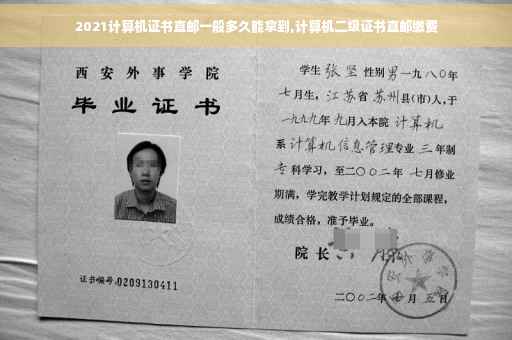 2021计算机证书直邮一般多久能拿到,计算机二级证书直邮缴费
西安外事学院
毕业证书
证书编号:0209130411
学生 张坚 性别 男 一九八〇年
七月生, 江苏省 苏州 县(市)人,于
一九九九年 九月入本院 计算机
系 计算机信息管理 专业 三 年制
专 科学习, 至二〇〇二年 七月修业
期满, 学完教学计划规定的全部课程,
成绩合格, 准予毕业。
院长
二〇〇二年 月 五日